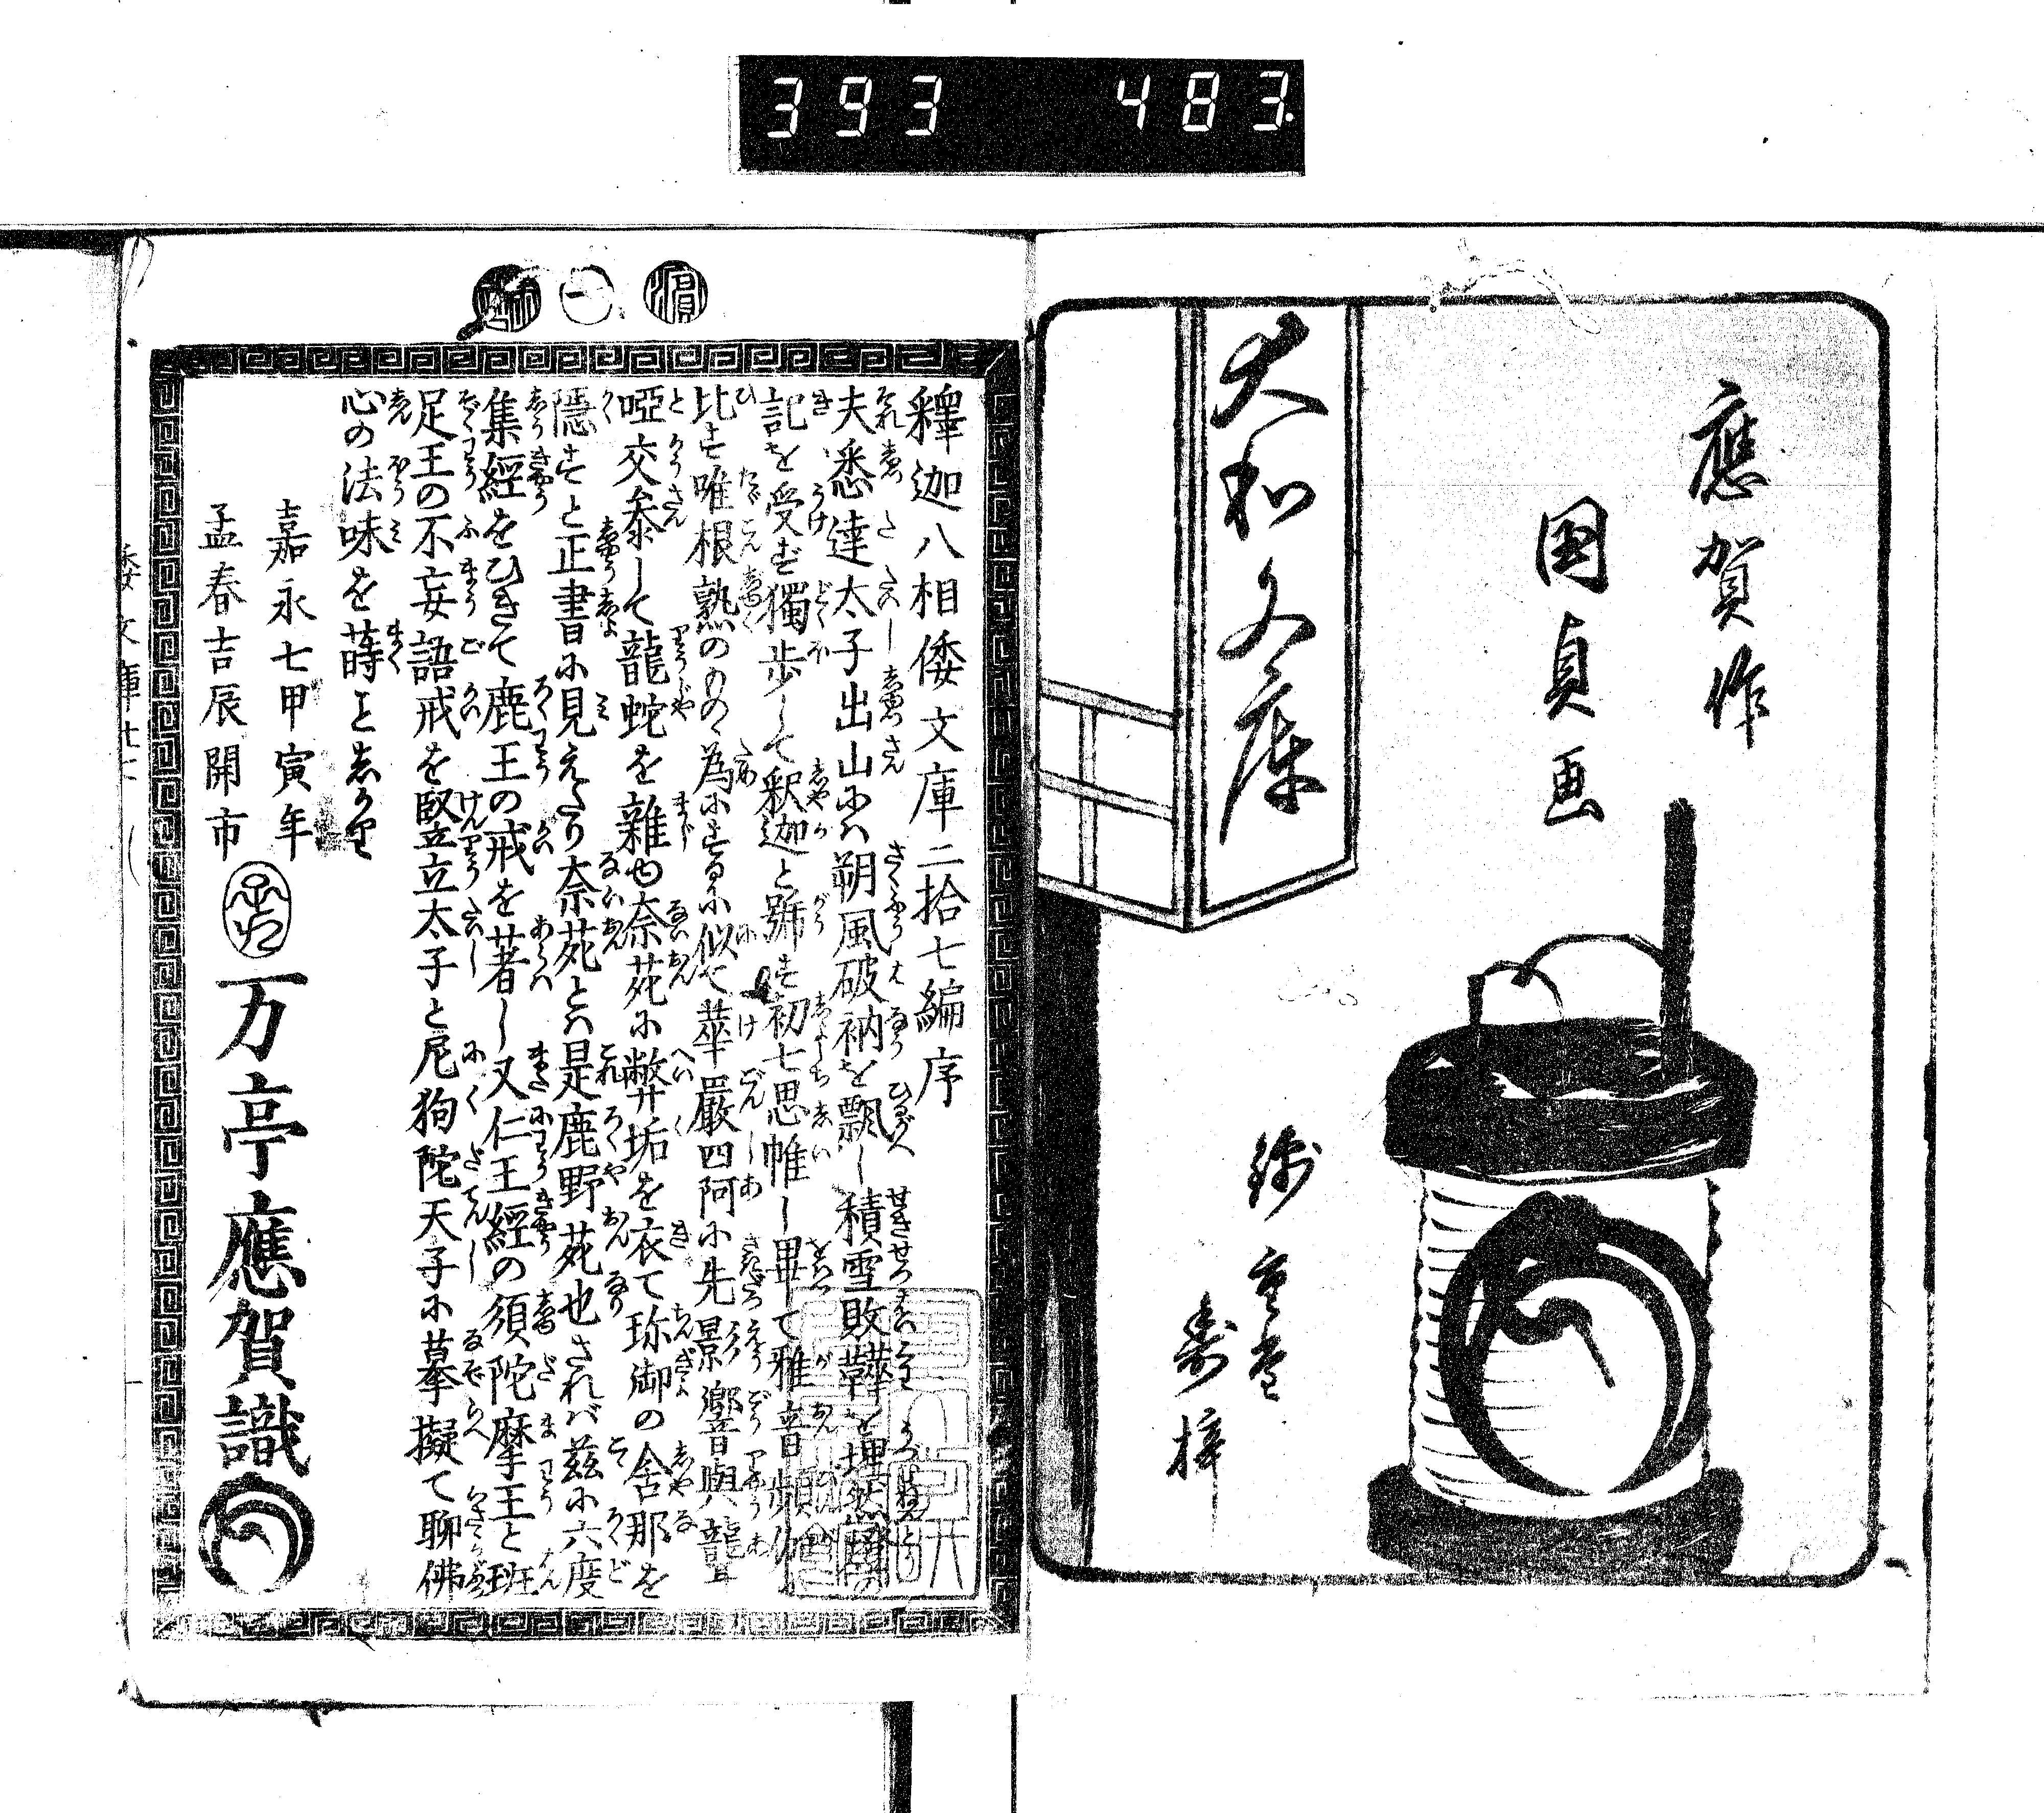 393 483.
應賀作
国貞画
大和文庫
錦重堂
壽梓
釋迦八相倭文庫二拾七編序
夫悉達太子出山ふハ朔風破衲を飄し積雪敗鞾を埋
記を受ず獨歩して釈迦と號す初七思惟し畢て雅音頻
比す唯根熟のものゝ為ふするふ似て華嚴四阿ふ先影響與聾
啞交参して龍蛇を雜ゆ奈苑ふ敝垢を衣て珎御の舎那を
隱すと正書ふ見えたり奈苑とハ是鹿野苑也されバ茲ふ六度
集經をひきて鹿王の戒を著し又仁王經の須陀摩王と班
足王の不妄語戒を堅立太子と尼狗陀天子ふ摹擬て聊佛
心の法味を蒔くと志かいふ
嘉永七甲寅年
孟春吉辰開市
万亭應賀識
倭文庫廿七